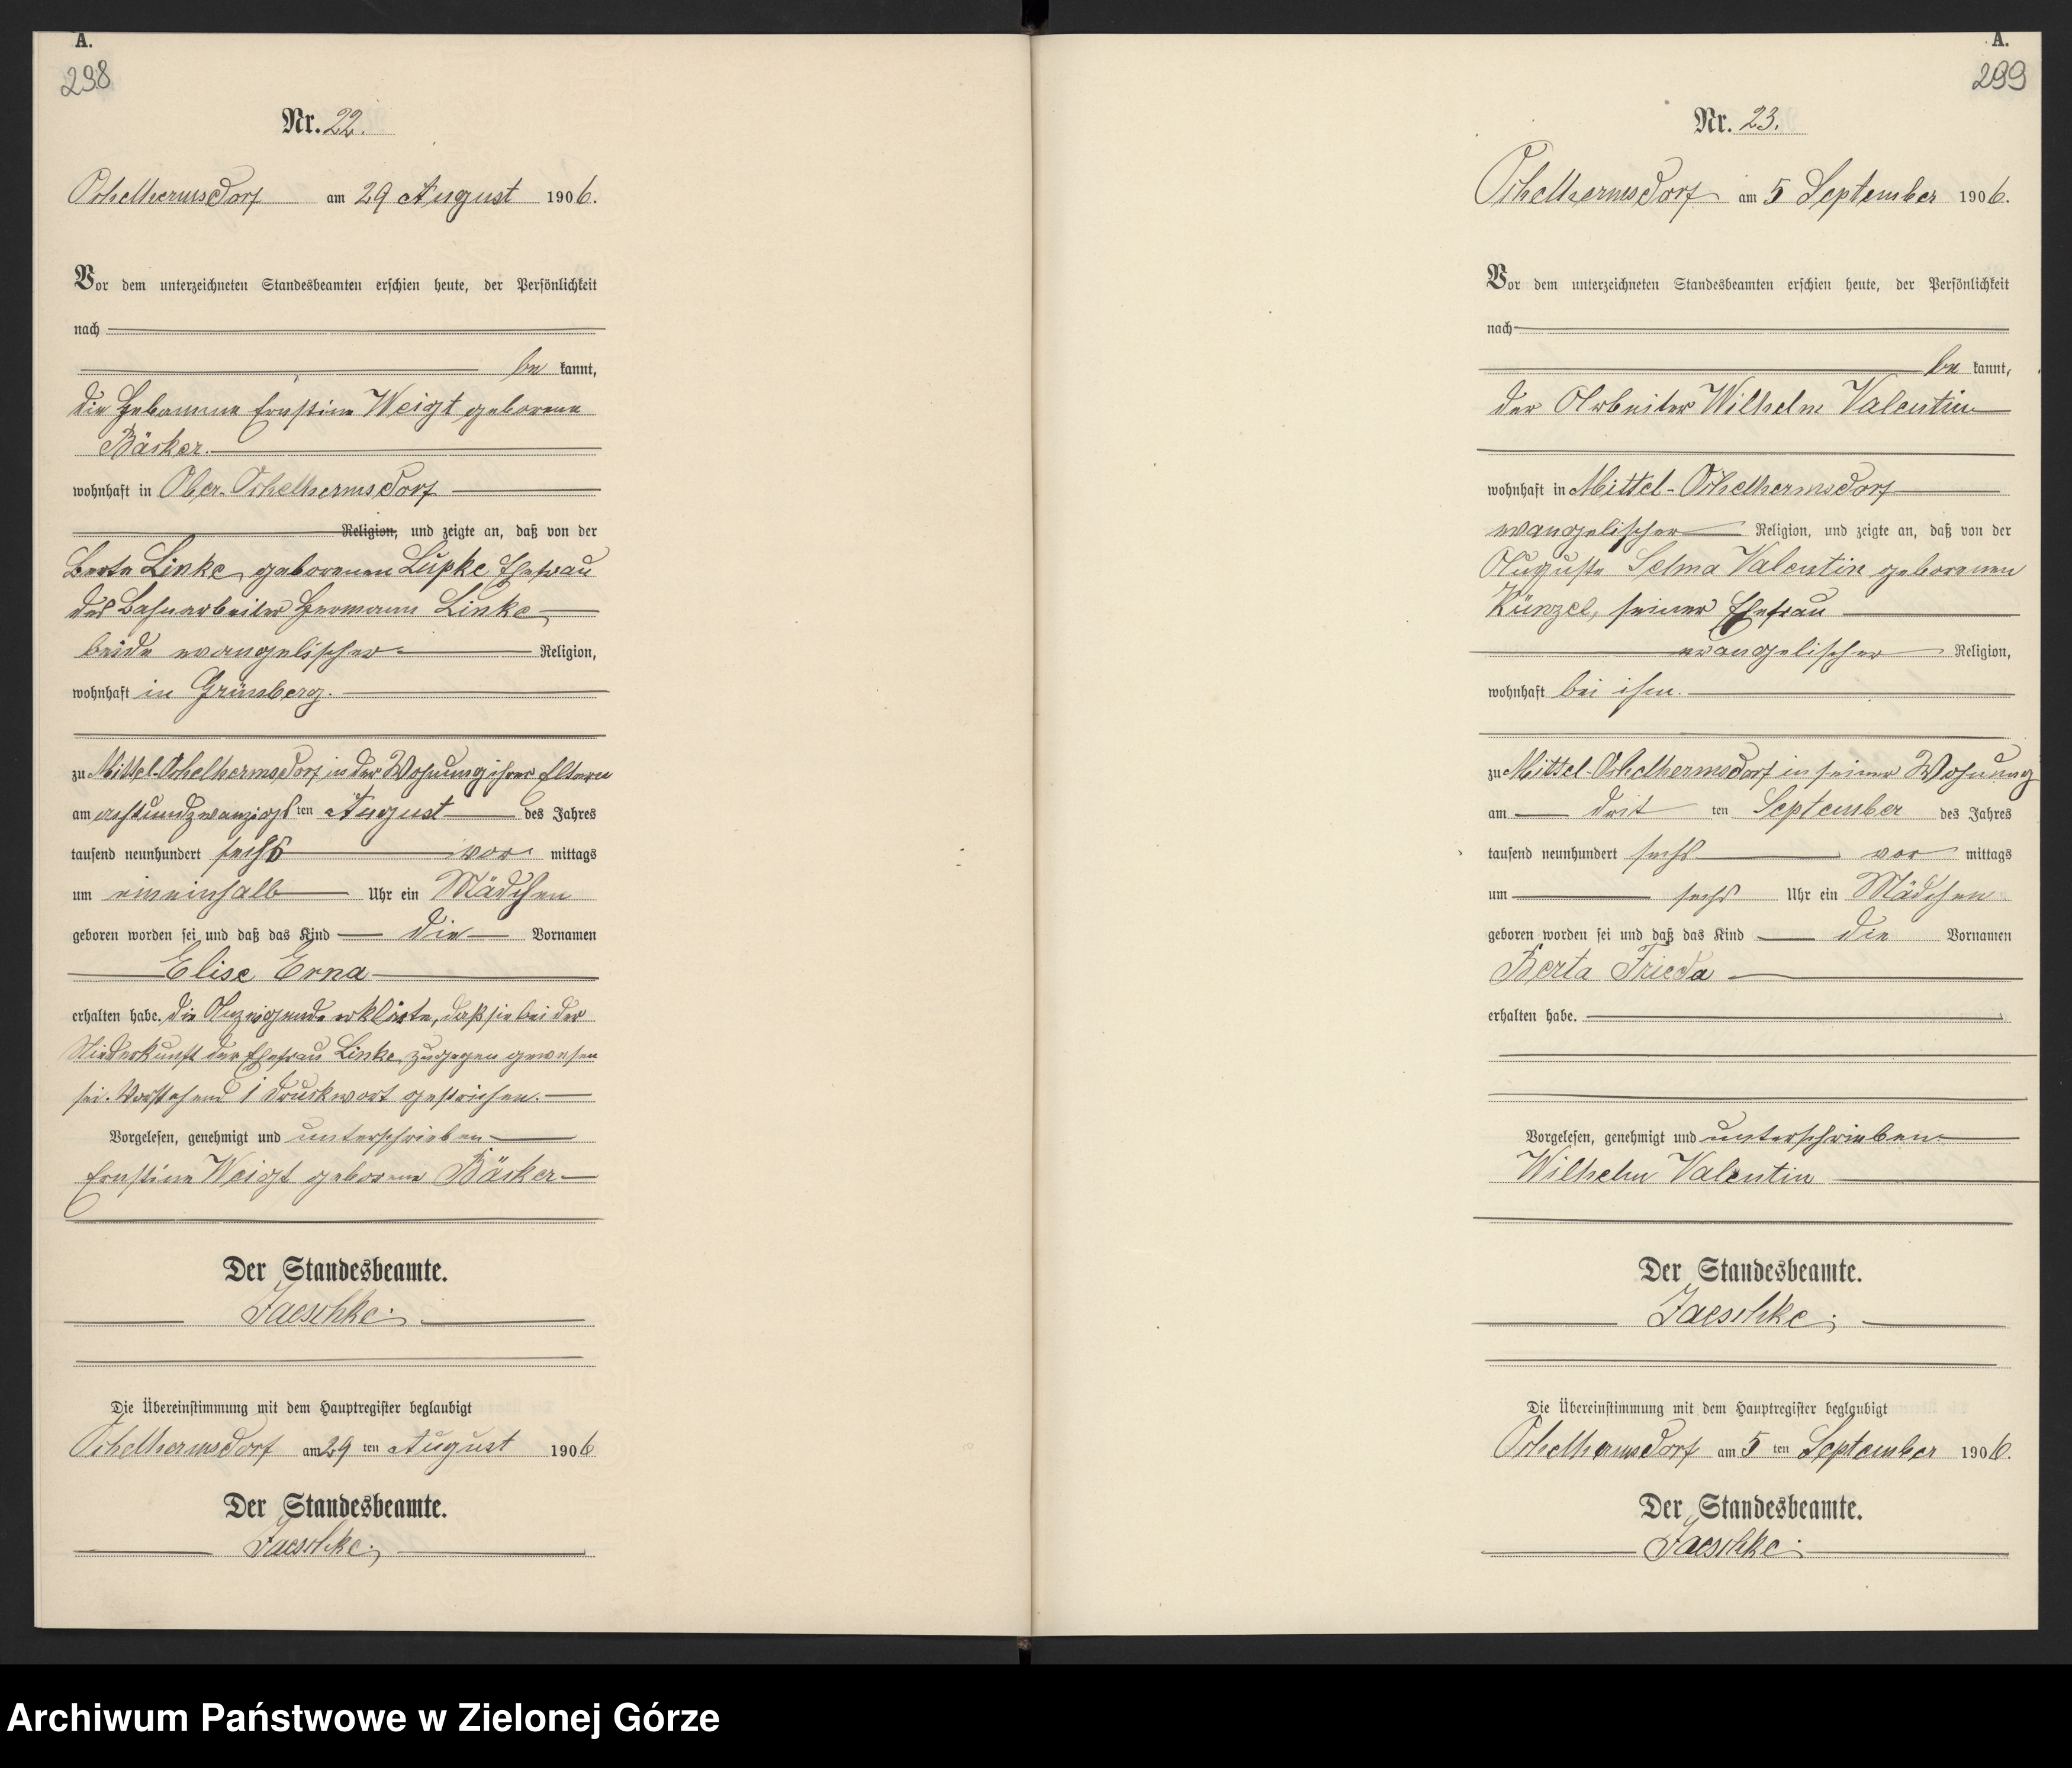 A.
298
Nr. 22.
Ochelhermsdorf am 29 August 1906.
Vor dem unterzeichneten Standesbeamten erschien heute, der Persönlichkeit
nach
be kannt,
die Hebamme Ernstine Weigt geborene
Bäsker.
wohnhaft in Ober-Ochelhermsdorf
Religion, und zeigte an, daß von der
Berta Linke, geborenen Lupke Ehefrau
des Bahnarbeiter Hermann Linke
beide evangelischer Religion,
wohnhaft in Grünberg.
zu Mittel-Ochelhermsdorf in der Wohnung ihrer Eltern
am achtundzwanzigsten August des Jahres
tausend neunhundert sechs vor mittags
um eineinhalb Uhr ein Mädchen
geboren worden sei und daß das Kind die Vornamen
Elise Erna
erhalten habe. Die Anzeigende erklärte, daß sie bei der
Niederkunft der Ehefrau Linke zugegen gewesen
sei. Vorstehend 1 Druckwort gestrichen.
Vorgelesen, genehmigt und unterschrieben
Ernstine Weigt geborene Bäsker
Der Standesbeamte.
Jaeschke.
Die Übereinstimmung mit dem Hauptregister beglaubigt
Ochelhermsdorf am 29 ten August 1906
Der Standesbeamte.
Jaeschke.
A.
299
Nr. 23.
Ochelhermsdorf am 5 September 1906.
Vor dem unterzeichneten Standesbeamten erschien heute, der Persönlichkeit
nach
be kannt,
der Arbeiter Wilhelm Valentin
wohnhaft in Mittel-Ochelhermsdorf
evangelischer Religion, und zeigte an, daß von der
Auguste Selma Valentin geborenen
Künzel, seiner Ehefrau
evangelischer Religion,
wohnhaft bei ihm.
zu Mittel-Ochelhermsdorf in seiner Wohnung
am drit ten September des Jahres
tausend neunhundert sechs vor mittags
um sechs Uhr ein Mädchen
geboren worden sei und daß das Kind die Vornamen
Berta Frieda
erhalten habe.
Vorgelesen, genehmigt und unterschrieben
Wilhelm Valentin
Der Standesbeamte.
Jaeschke.
Die Übereinstimmung mit dem Hauptregister beglaubigt
Ochelhermsdorf am 5 ten September 1906.
Der Standesbeamte.
Jaeschke.
Archiwum Państwowe w Zielonej Górze